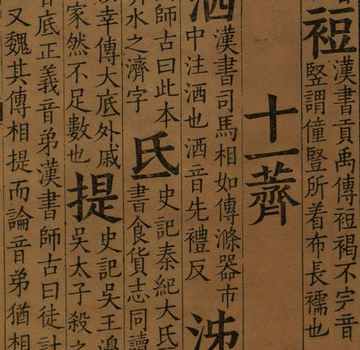 裋
漢書貢禹傳裋褐不字音
豎謂僮豎所着布長襦也
十一薺
洒
漢書司馬相如傳滌器市
中注洒也洒音先禮反
泲
師古曰此本
水之濟字
氐
史記秦紀大氐
書食貨志同讀
幸傳大底外戚
家然不足數也
提
史記吳王濞
吳太子殺之
底正義音弟漢書師古曰徒計
又魏其傳相提而論音弟猶相